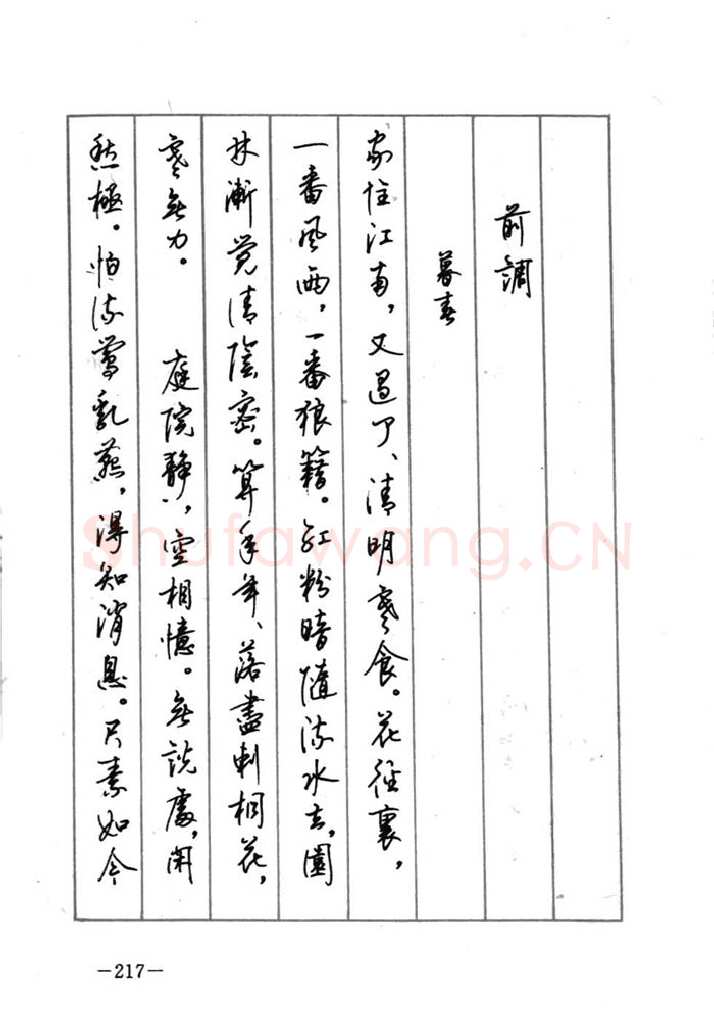 前調
暮春
家住江南，又過了、清明寒食。花徑裏，
一番風雨，一番狼籍。紅粉暗隨流水去，園
林漸覺清陰密。算年年、落盡刺桐花，
寒無力。　庭院静，空相憶。無説處，閑
愁極。怕流鶯乳燕，得知消息。尺素如今
Shufawang.CN
—217—